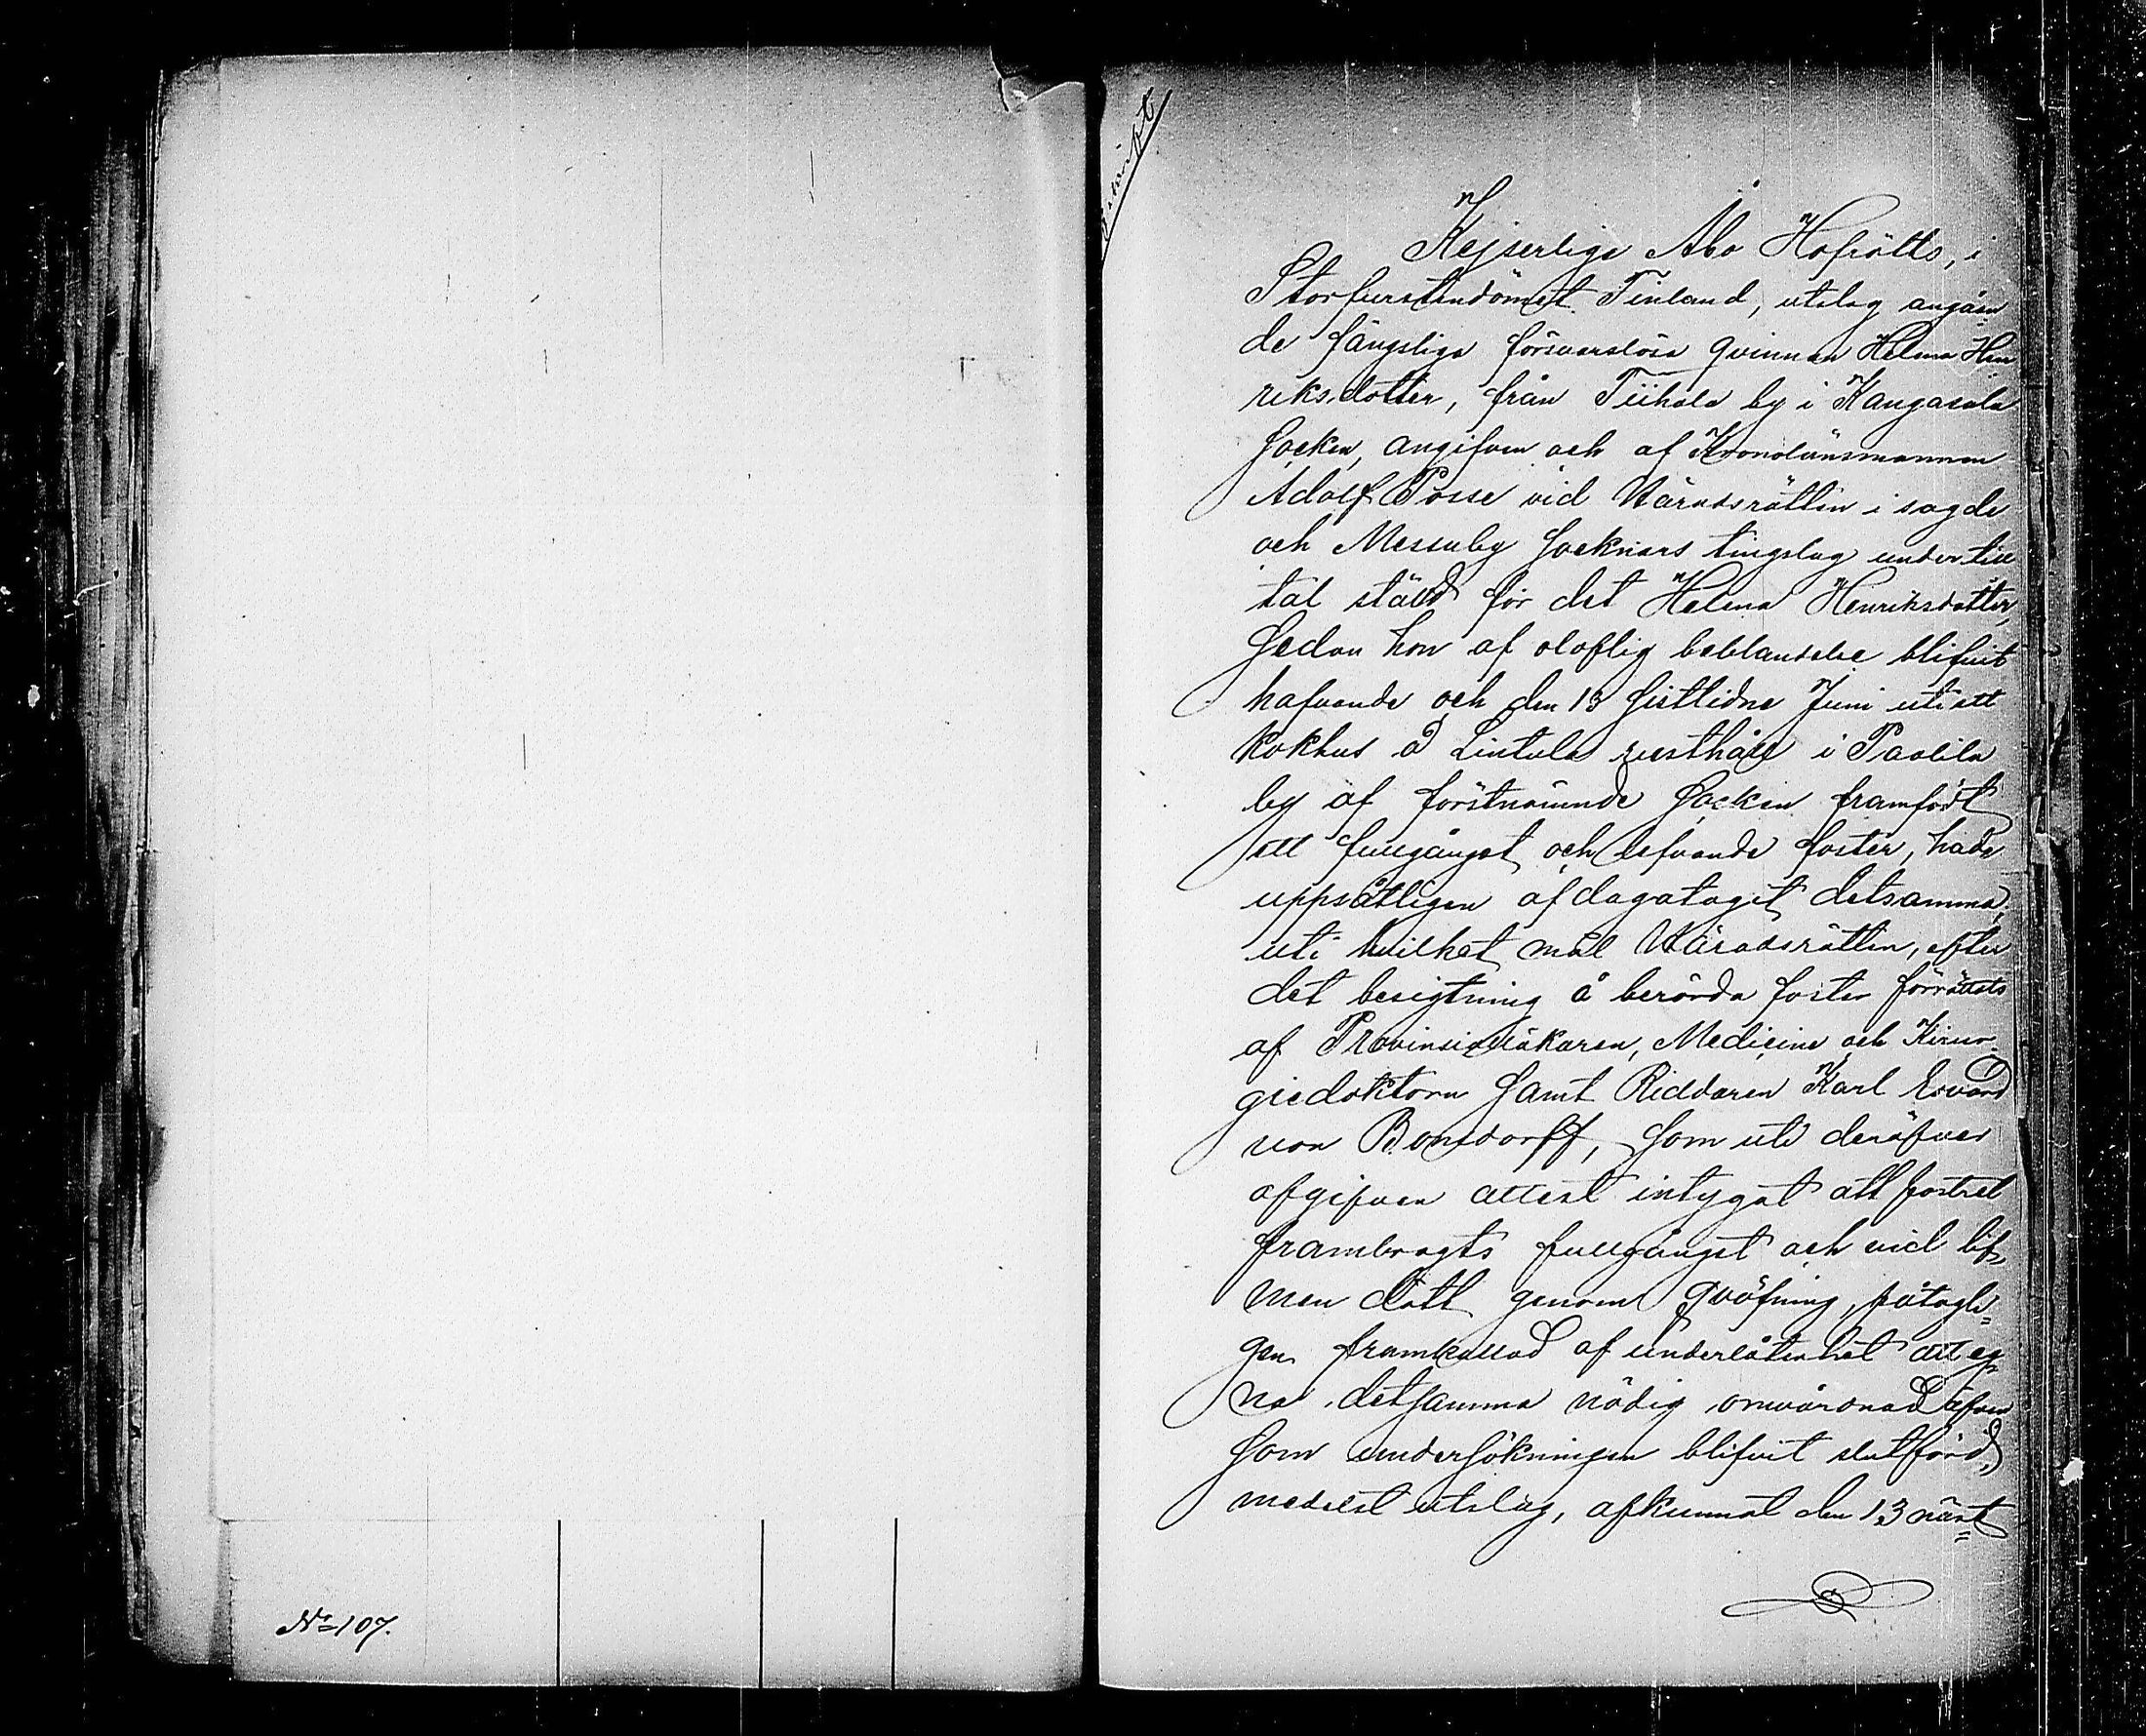 No 107.
Afskrift
Kejserliga Åbo Hofrätts, i
Storfurstendömet Finland, utslag angåen
de fängsliga försvarslösa qvinnan Helena Hen
riksdotter, från Tiihala by i Kangasala
socken, angifven och af Kronolänsmannen
Adolf Posse vid Häradsrätten i sagde
och Messuby socknars tingslag under till
tal stäld för det Helena Henriksdotter,
sedan hon af oloflig beblandelse blifvit
hafvande och den 13 sistlidne Juni uti ett
kokhus å Lintula rusthåll i Paalila
by af förstnämnde socken framfödt
ett fullgånget och lefvande foster, hade
uppsåtligen afdagatagit detsamma,
uti hvilket mål Häradsrätten, efter
det besigtning å berörda foster förrättats
af Provinsialläkaren, Medicine och Kirur-
giedoktorn samt Riddaren Karl Edvard
von Bonsdorff, som uti deröfver
afgifven attest intygat att fostret
frambragts fullgånget och vid lif,
men dött genom qväfning, påtagli=
gen framkallad af underlåtenhet att eg=
na detsamma nödig omvårdnad äfven
som undersökningen blifvit slutförd,
medelst utslag, afkunnat den 13 näst=